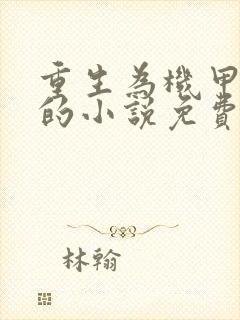 重生為機甲
的小說免費
林翰